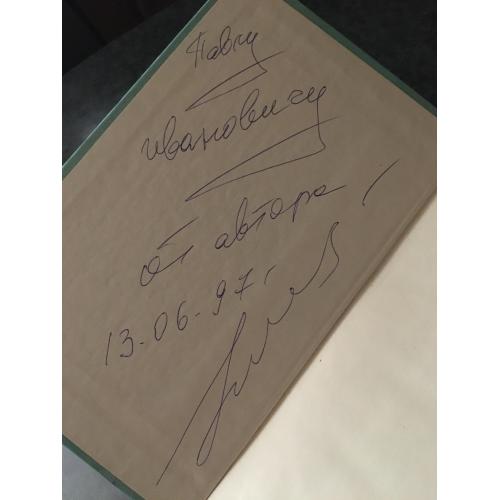 Павлу
Ивановичу
от автора
13.06.97г